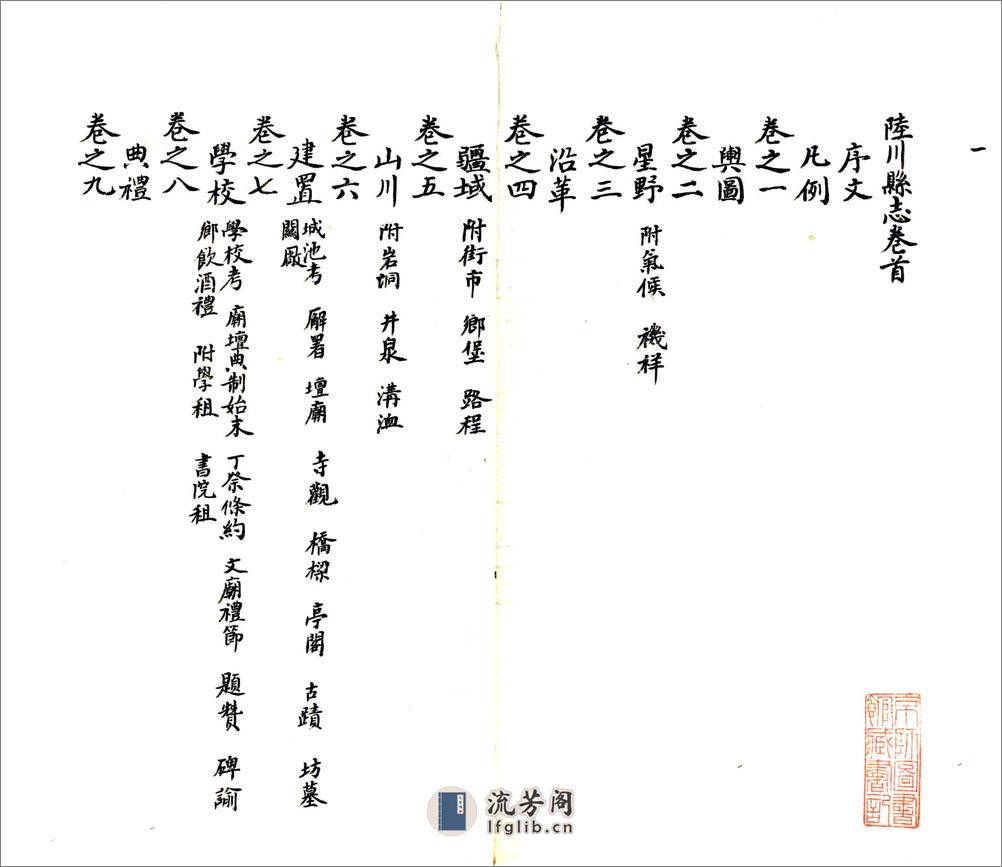 一
陸川縣志卷首
序文
凡例
卷之一
輿圖
卷之二
星野 附氣候 禨祥
卷之三
沿革
卷之四
疆域 附街市 鄉堡 路程
卷之五
山川 附岩垌 井泉 溝洫
卷之六
建置 城池考 廨署 壇廟 寺觀 橋樑 亭閣 古蹟 坊墓
關厫
卷之七
學校 學校考 廟壇典制始末 丁祭條約 文廟禮節 題贊 碑諭
鄉飲酒禮 附學租 書院租
卷之八
典禮
卷之九
京師圖書
館藏書記
流芳阁
lfglib.cn